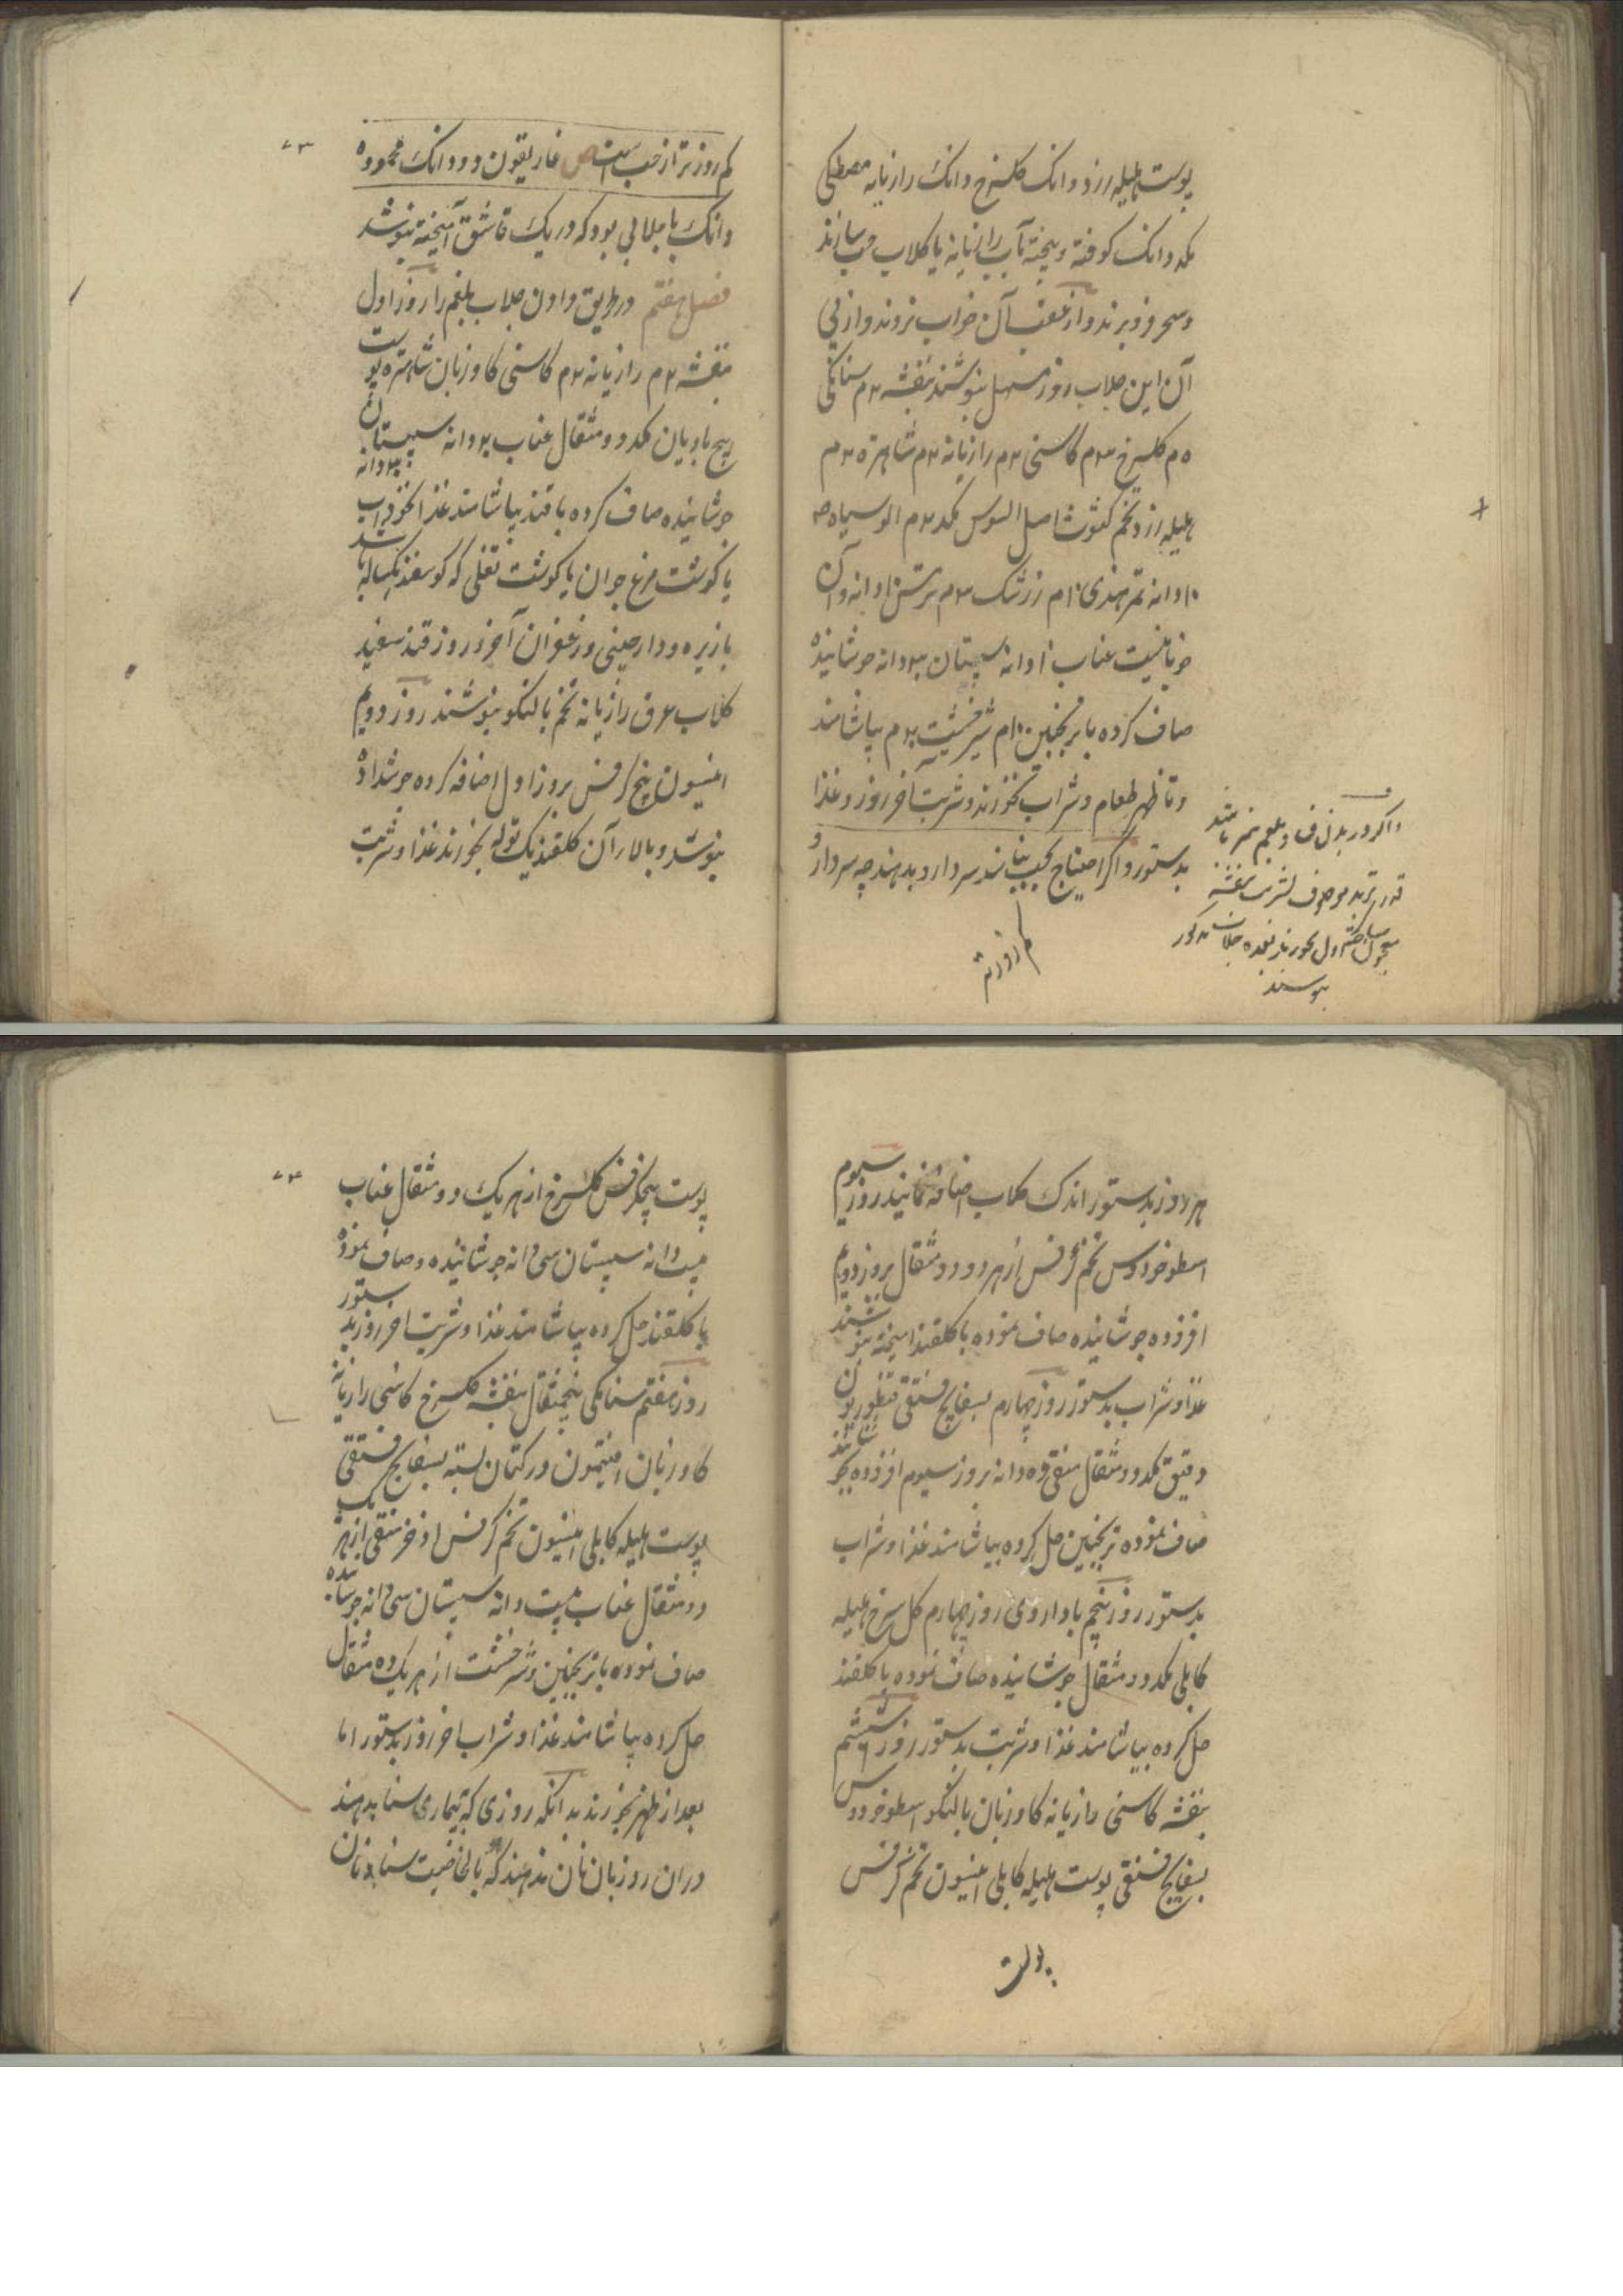 پوست هلیله زرد دو دانک گلسرخ دانک رازیانه مصطکی
یکد دانک کوفته و بیخته بآب رازیانه یا گلاب حب سازند
و سحر فرو برند و از عقب آن خواب نروند و از پی
آن این جلاب روز مسهل بنوشند بنفشه ۲م سنامکی
۵م گلسرخ ۳م کاسنی ۲م رازیانه ۲م شاهتره ۲م
هلیله زرد تخم کثوث اصل السوس یکد ۲م الو سیاه
۱۰دانه تمر هندی ۱۰م زرشک ۳م
عناب ۱۰دانه سپستان ۳۰دانه جوشانیده
صاف کرده با ترنجبین ۱۰م شیرخشت ۲۰م بیاشامند
و تا ظهر طعام و شراب نخورند و شربت آخر روز و غذا
بدستور و اگر احتیاج بحبی نباشد سر دارو بدهند چه سر دارو
و اگر در بدن فساد بلغم نیز باشد
قدر تربد موصوف بشربت بنفشه
اول بخورند بعده جلاب مذکور
بنوشند
کم زورتر
کم زورتر از حب است ص غاریقون دو دانک محموده
دانک با جلابی بود که در یک قاشق آمیخته بنوشد
فصل هفتم در طریق دادن جلاب بلغم را روز اول
بنفشه ۲م رازیانه ۲م کاسنی کاوزبان شاهتره پوست
بیخ بادیان یکد دو مثقال عناب ۲۰دانه سپستان ۳۰دانه
جوشانیده صاف کرده با قند بیاشامند غذا نخوداب
با گوشت مرغ جوان یا گوشت نقلی که گوسفند یکساله باشد
با زیره و دارچینی و زعفران آخر روز قند سفید
گلاب عرق رازیانه تخم بالنکو بنوشند روز دویم
انیسون بیخ کرفس بروز اول اضافه کرده جوشداده
بنوشد و بالای آن گلقند یک توله بخورند غذا و شربت
هر روز بدستور اندک گلاب اضافه نمایند روز سیوم
اسطوخودوس تخم کرفس از هر دو دو مثقال بروز دویم
افزوده جوشانیده صاف نموده با گلقند آمیخته بنوشند
غذا و شراب بدستور روز چهارم بسفایج فستقی قنطوریون
دقیق یکد دو مثقال منقی ده دانه بروز سیوم افزوده بجوشانند
صاف نموده ترنجبین حل کرده بیاشامند غذا و شراب
بدستور روز پنجم با داروی روز چهارم گل سرخ هلیله
کابلی یکد دو مثقال جوشانیده صاف نموده با گلقند
حل کرده بیاشامند غذا و شربت بدستور روز ششم
بنفشه کاسنی رازیانه کاوزبان بالنکو اسطوخودوس
بسفایج فستقی پوست هلیله کابلی انیسون تخم کرفس
پوست
پوست بیخ کرفس گلسرخ از هر یک دو مثقال عناب
بیست دانه سپستان سی دانه جوشانیده و صاف نموده
با گلقند حل کرده بیاشامند غذا و شربت آخر روز بدستور
روز هفتم سنامکی پنجمثقال بنفشه گلسرخ کاسنی رازیانه
کاوزبان افتیمون در کتان بسته بسفایج فستقی
پوست هلیله کابلی انیسون تخم کرفس اذخر منقی از هر یک
دو مثقال عناب بیست دانه سپستان سی دانه جوشانیده
صاف نموده با ترنجبین و شیرخشت از هر یک ده مثقال
حل کرده بیاشامند غذا و شراب آخر روز بدستور اما
بعد از ظهر بخورند بدانکه روزی که بیماری سنا بدهند
در آن روز بان نان ندهند که بالخاصیت سنا و نان